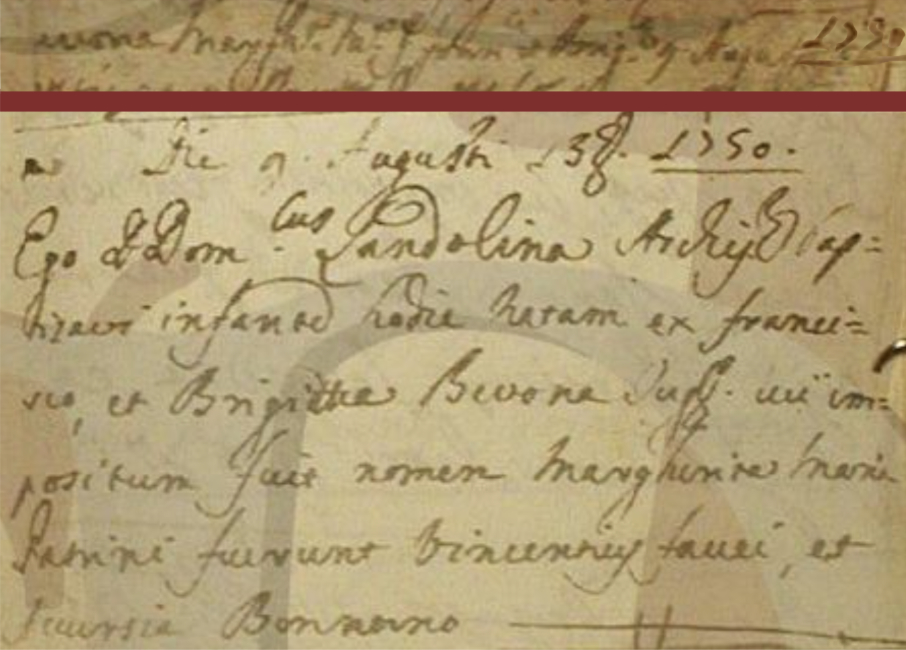 Bivona Margh.ta 9 Aug. 1750
Die 9. Augusti 13 1750.
Ego D. Dom.cus Landolina Archip. bap=
tizavi infantem hodie natam ex Franci=
sco, et Brigitta Bivona Jug. cui im=
positum fuit nomen Margherita Maria
Patrini fuerunt Vincentius fauci, et
Bonnanno